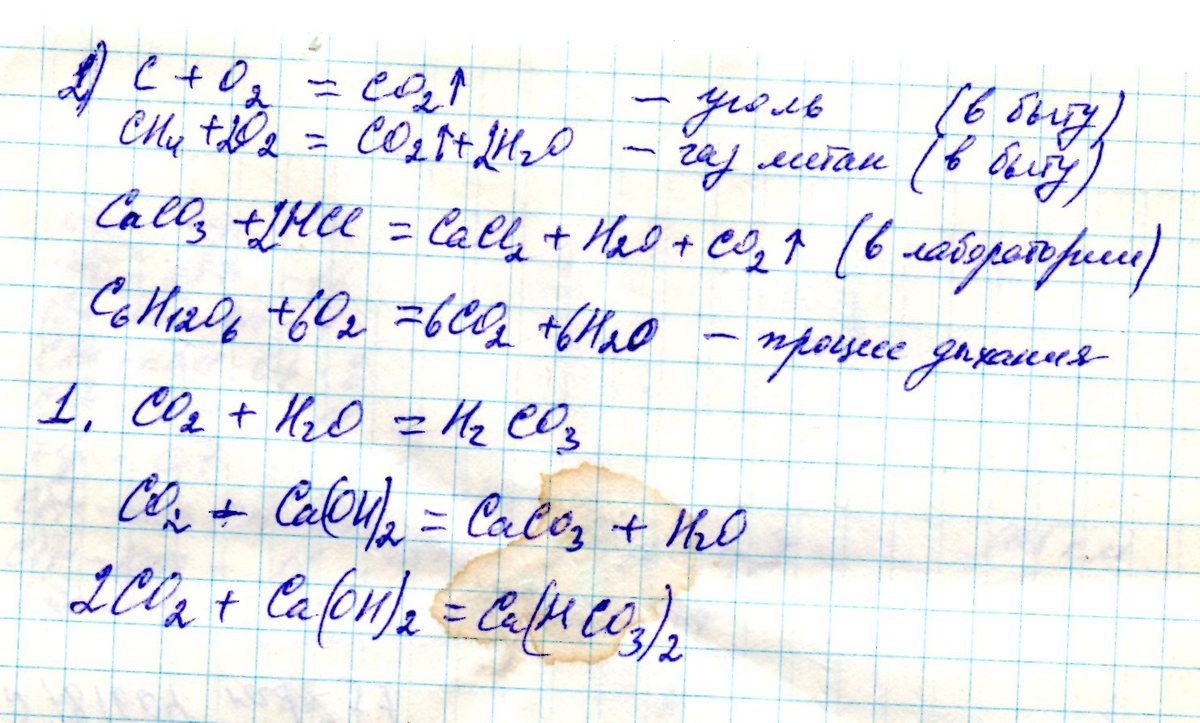 2) C + O2 = CO2↑ — уголь (в быту)
CH4 + 2O2 = CO2↑ + 2H2O — газ метан (в быту)
CaCO3 + 2HCl = CaCl2 + H2O + CO2↑ (в лаборатории)
C6H12O6 + 6O2 = 6CO2 + 6H2O — процесс дыхания
1. CO2 + H2O = H2CO3
CO2 + Ca(OH)2 = CaCO3 + H2O
2CO2 + Ca(OH)2 = Ca(HCO3)2